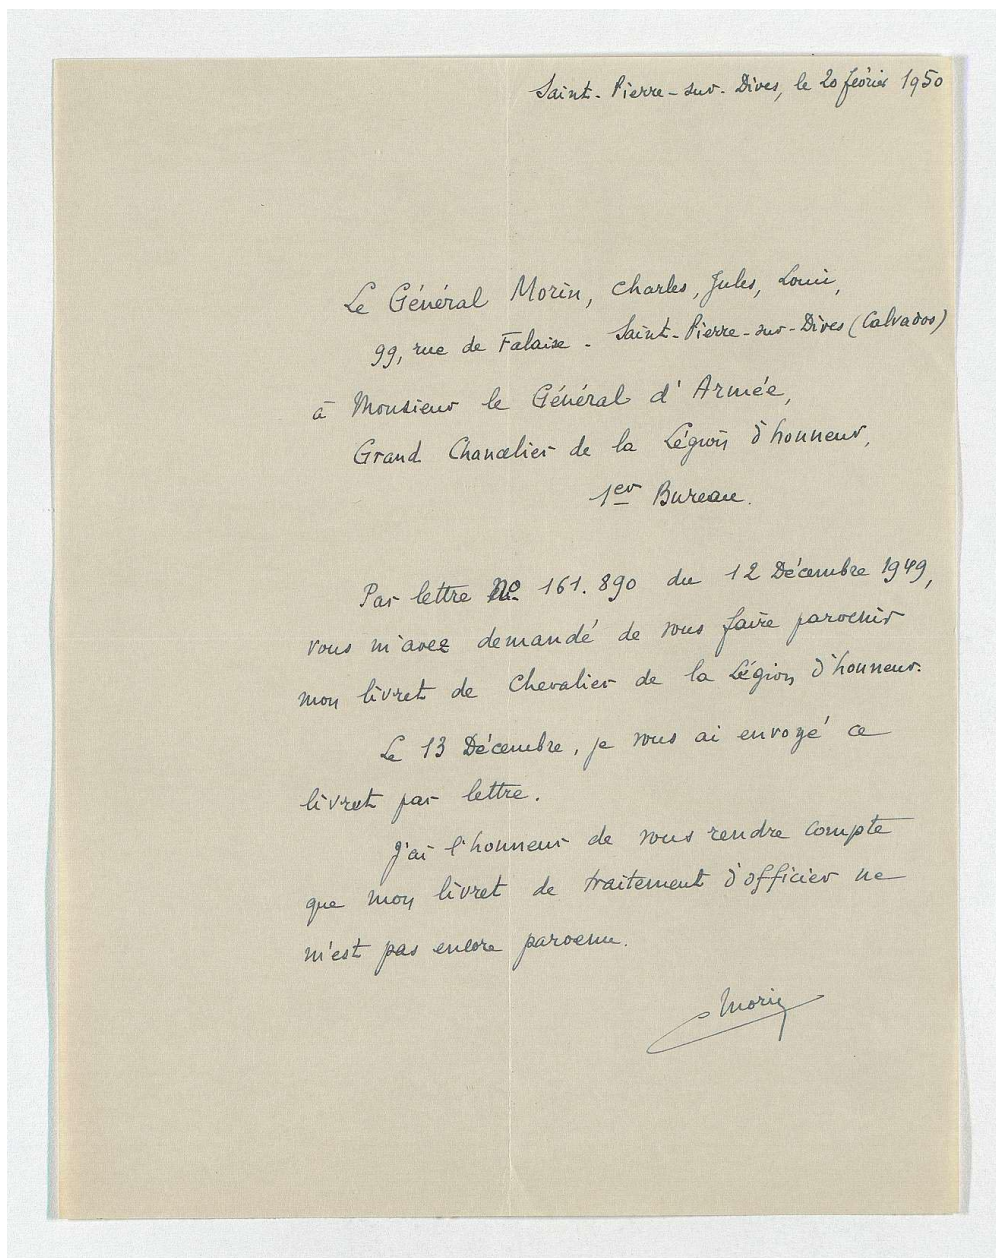 Saint-Pierre-sur-Dives, le 20 février 1950
Le Général Morin, Charles, Jules, Louis,
99, rue de Falaise - Saint-Pierre-sur-Dives (Calvados)
à Monsieur le Général d'Armée,
Grand Chancelier de la Légion d'honneur,
1er Bureau.
Par lettre No 161.890 du 12 Décembre 1949,
vous m'avez demandé de vous faire parvenir
mon livret de Chevalier de la Légion d'honneur.
Le 13 Décembre, je vous ai envoyé ce
livret par lettre.
J'ai l'honneur de vous rendre compte
que mon livret de traitement d'officier ne
m'est pas encore parvenu.
Morin